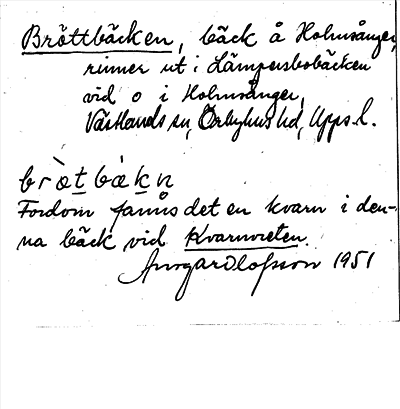 Bröttbäcken, bäck å Holmsånger,
rinner ut i Lämpersbobäcken
vid o i Holmsånger,
Västlands sn, Örbyhus hd, Upps. l.
brö̀tbäkn
Fordom fanns det en kvarn i den-
na bäck vid Kvarnvreten.
Olofsson 1951